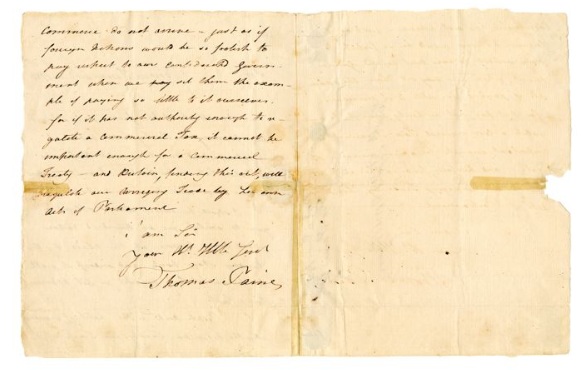 Commerce do not arrive – just as if
foreign Nations would be so foolish to
pay respect to our confederated Govern-
ment when we may set them the exam-
ple of paying so little to it ourselves.
for if it has not authority enough to re-
gulate a Commercial Tax it cannot be
important enough for a Commercial
Treaty – and Britain, finding this out, will
regulate our carrying Trade by her own
acts of Parliament
I am Sir
your
Thomas Paine